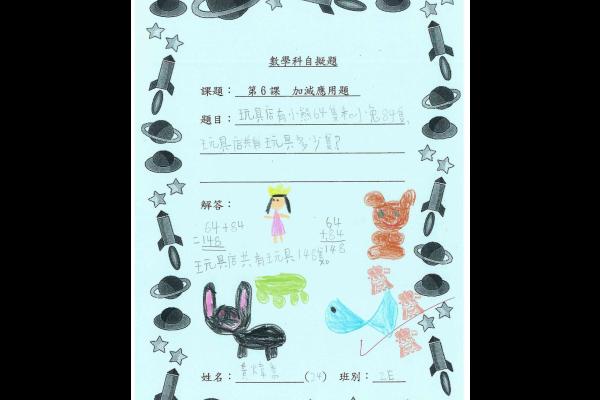 數學科自擬題
課題： 第6課 加減應用題
題目：玩具店有小熊64隻和小兔84隻，
玩具店共有玩具多少隻？
解答：
64+84
=148
64
+84
148
玩具店共有玩具148隻。
姓名： 黃 (24) 班別： 2E